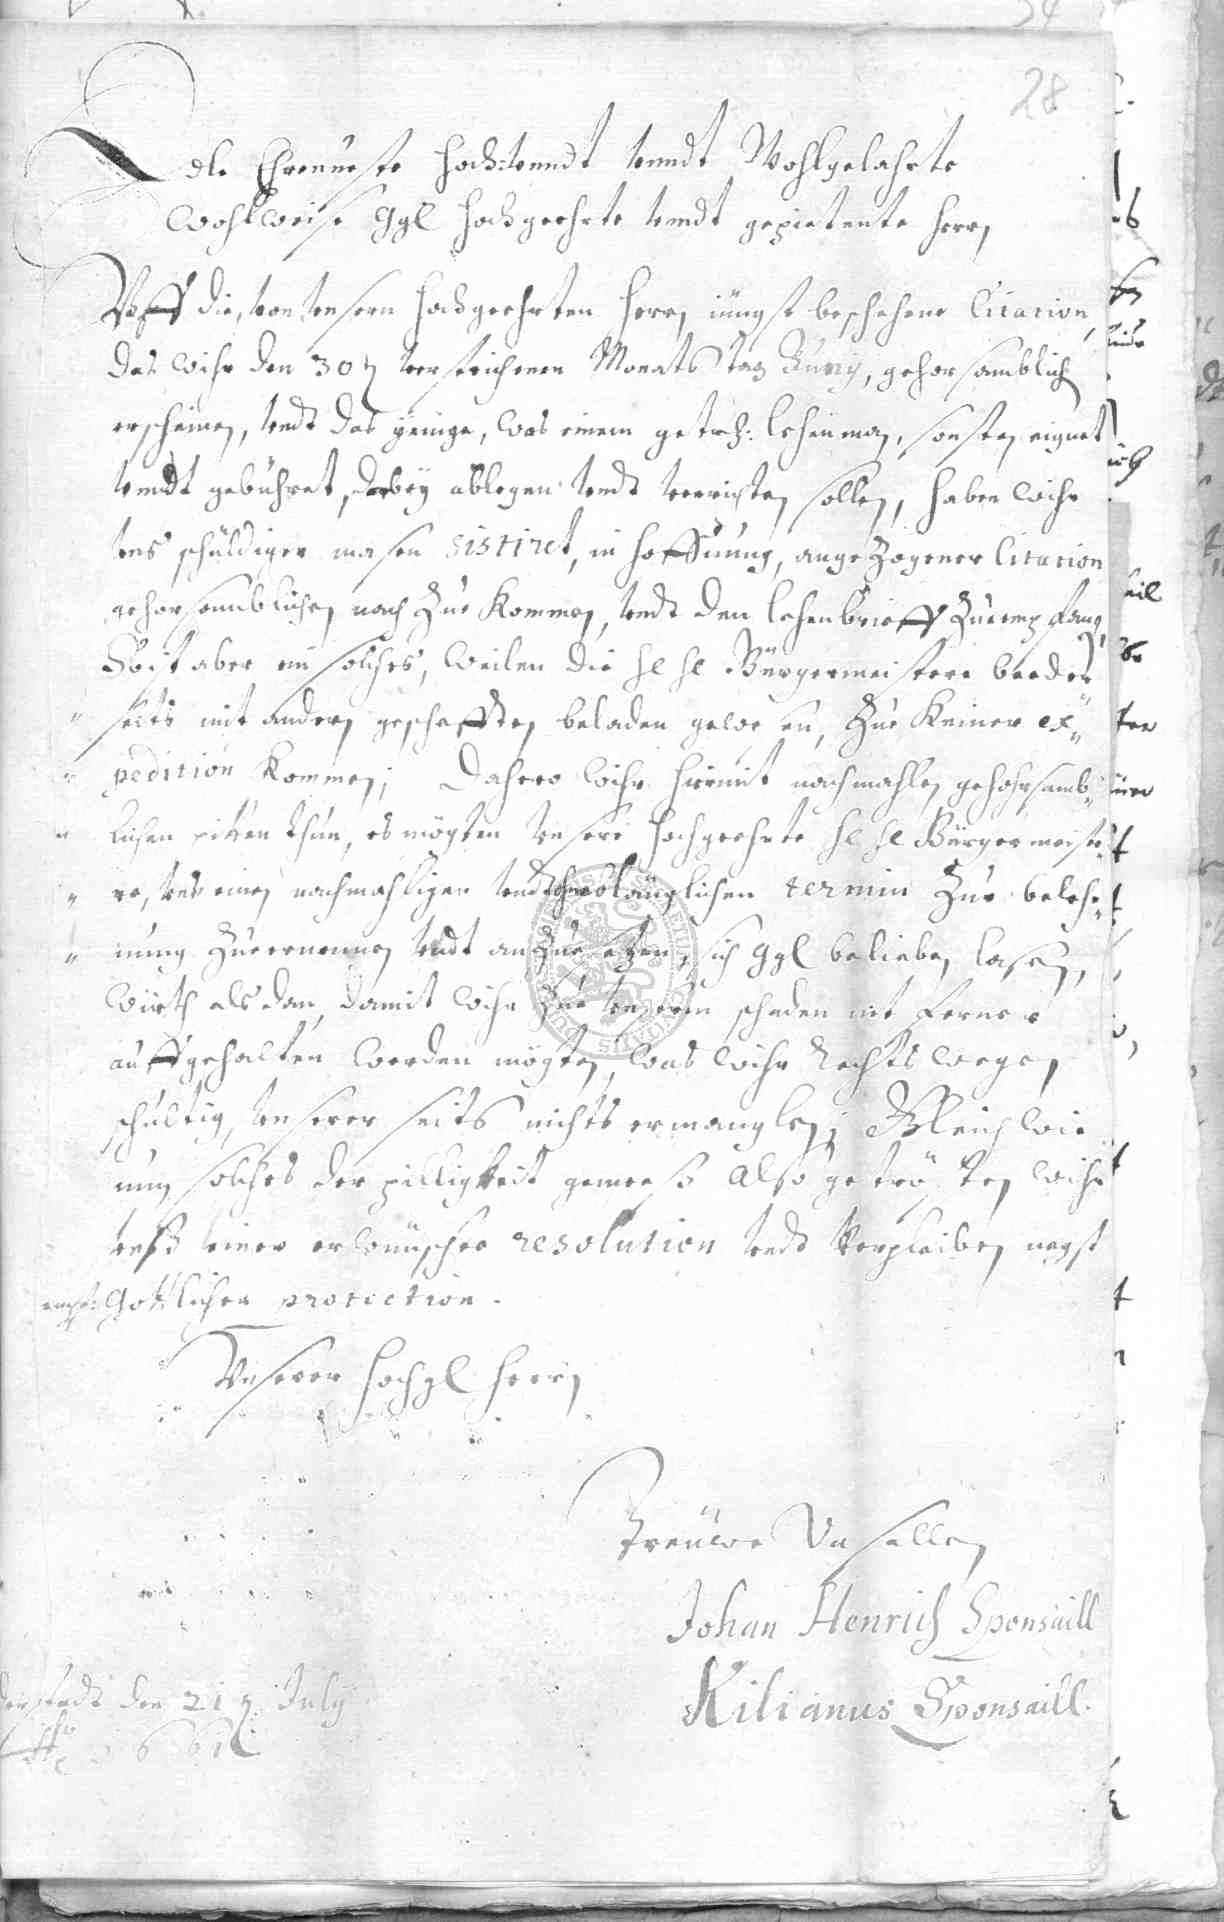 28
Edle Ehrenueste Hoch: vnndt vnndt Wohlgelahrte
wohlweise Ggl Hochgeehrte vndt gepietente Herrn
Vff die, von vnsern Hochgeehrten Herrn jüngst beschehene Citation,
das wihr den 30t verstrichenen Monats tag Junij, gehorsamblich
erscheinen, vndt das yenige, was einem getrew: lehenman, sonsten eignet
vnndt gebühret, darbey ablegen vndt verrichten sollen, haben wihr
vns schuldiger masen sistiret, in hoffnung, angezogener Citation
gehorsamblichen nach zue kommen, vndt den lehenbrieff zue empfang,
So ist aber ein solches, weilen die hl hl Bürgermeistere beeder
seits mit andern geschefften beladen gewesen, zue keiner ex„
pedition kommen; Dahero wihr hiermit nachmahlen gehohrsamb„
lichen pitten thun, es mögten vnsere Hochgeehrte hl hl Bürgermeiste„
re, vns einen nachmahligen termin zue beleh„
nung zue ernennen vndt an zue setzen, sich Ggl belieben lasen,
als dan, damit wihr zue vnserem schaden nit ferner
auffgehalten werden mögten, was wihr Rechts wegen
schultig, vnserer seits nichts ermanglen; Gleich wie
nun solches der pilligkeit gemees also getrösten wihr
vnß einer erwünschen resolution vndt verpleiben negst
empf: Gottlichen protection.
Vnserer Hochgl Herrn
Treüwe Vasallen
Johan Henrich Sponsaill
Kilianus Sponsaill.
den 21t July